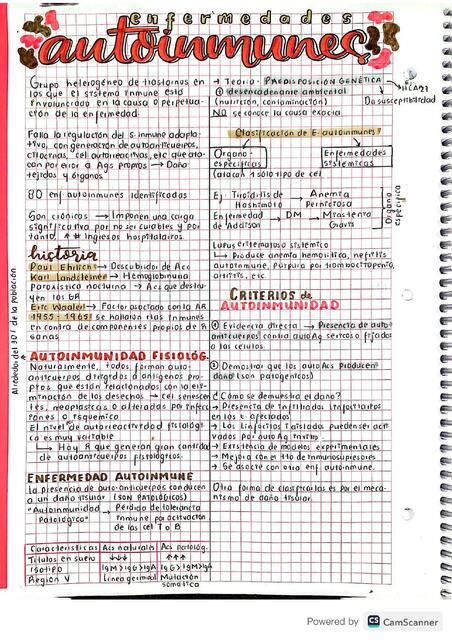 enfermedades
autoinmunes
Grupo heterogéneo de trastornos en
los que el sistema inmune está
involucrado en la causa o perpetua-
ción de la enfermedad.
Falla la regulación del s. inmune adapta-
tivo, con generación de autoanticuerpos,
citocinas, cel autoreactivas, etc que ata-
can por error a Ags propios → Daño
tejidos y órganos
80 enf autoinmunes identificadas
Son crónicas → Imponen una carga
significativa por no ser curables y por
tanto ↑ # ingresos hospitalarios.
historia
Paul Ehrlich → Descubridor de Acs
Karl Landsteiner → Hemoglobinuria
Paroxística nocturna → Acs que destru-
yen los GR
Eric Waaler → Factor asociado con la AR
1955-1965 se hallaron rtas inmunes
en contra de componentes propios de R
sanas
Alrededor del 30% de la población.
AUTOINMUNIDAD FISIOLÓG.
Naturalmente, todos forman auto-
anticuerpos dirigidos a antígenos pro-
pios que están relacionados con la eli-
minación de los desechos → cel senescen
tes, neoplásicas o alteradas por infec
ciones o isquemia
El nivel de autoreactividad fisiológi
ca es muy variable
→ Hay R que generan gran cantidad
de autoanticuerpos fisiológicos.
ENFERMEDAD AUTOINMUNE
la presencia de auto-anticuerpos conducen
a un daño tisular (son patológicos)
"Autoinmunidad → Pérdida de tolerancia
Patológica" inmune por activación
de las cel T o B
Características Acs naturales Acs patológ.
Títulos en suero ↓↓↓ ↑↑↑
Isotipo IgM>IgG>IgA IgG>IgM>IgA
Región V Línea germinal Mutación
somática
→ Teoría: PREDISPOSICIÓN GENÉTICA
HLA B27
Da susceptibilidad
⊕ desencadenante ambiental
(nutrición, contaminación)
NO se conoce la causa exacta
Clasificación de E. autoinmunes
Órgano
específicas
Enfermedades
sistémicas
(atacan 1 sólo tipo de cel
Ej: Tiroiditis de → Anemia
Hashimoto Perniciosa
Enfermedad → DM → Miastenia
de Addison Gravis
Órgano
específica
Lupus eritematoso sistémico
↳ Produce anemia hemolítica, nefritis
autoinmune, púrpura por trombocitopenia,
artritis, etc
CRITERIOS de
AUTOINMUNIDAD
① Evidencia directa → Presencia de auto-
anticuerpos contra auto Ag séricos o fijados
a las células
② Demostrar que los auto Acs producen
daño (son patógenos)
¿Cómo se demuestra el daño?
→ Presencia de infiltrados linfocitarios
en los t. afectados
→ Los linfocitos T aislados pueden ser acti
vados por auto Ag invitro.
→ Existencia de modelos experimentales
→ Mejora con el tto de inmunosupresores
→ Se asocie con otra enf autoinmune.
Otra forma de clasificarlas es por el meca-
nismo de daño tisular.
Powered by CS CamScanner